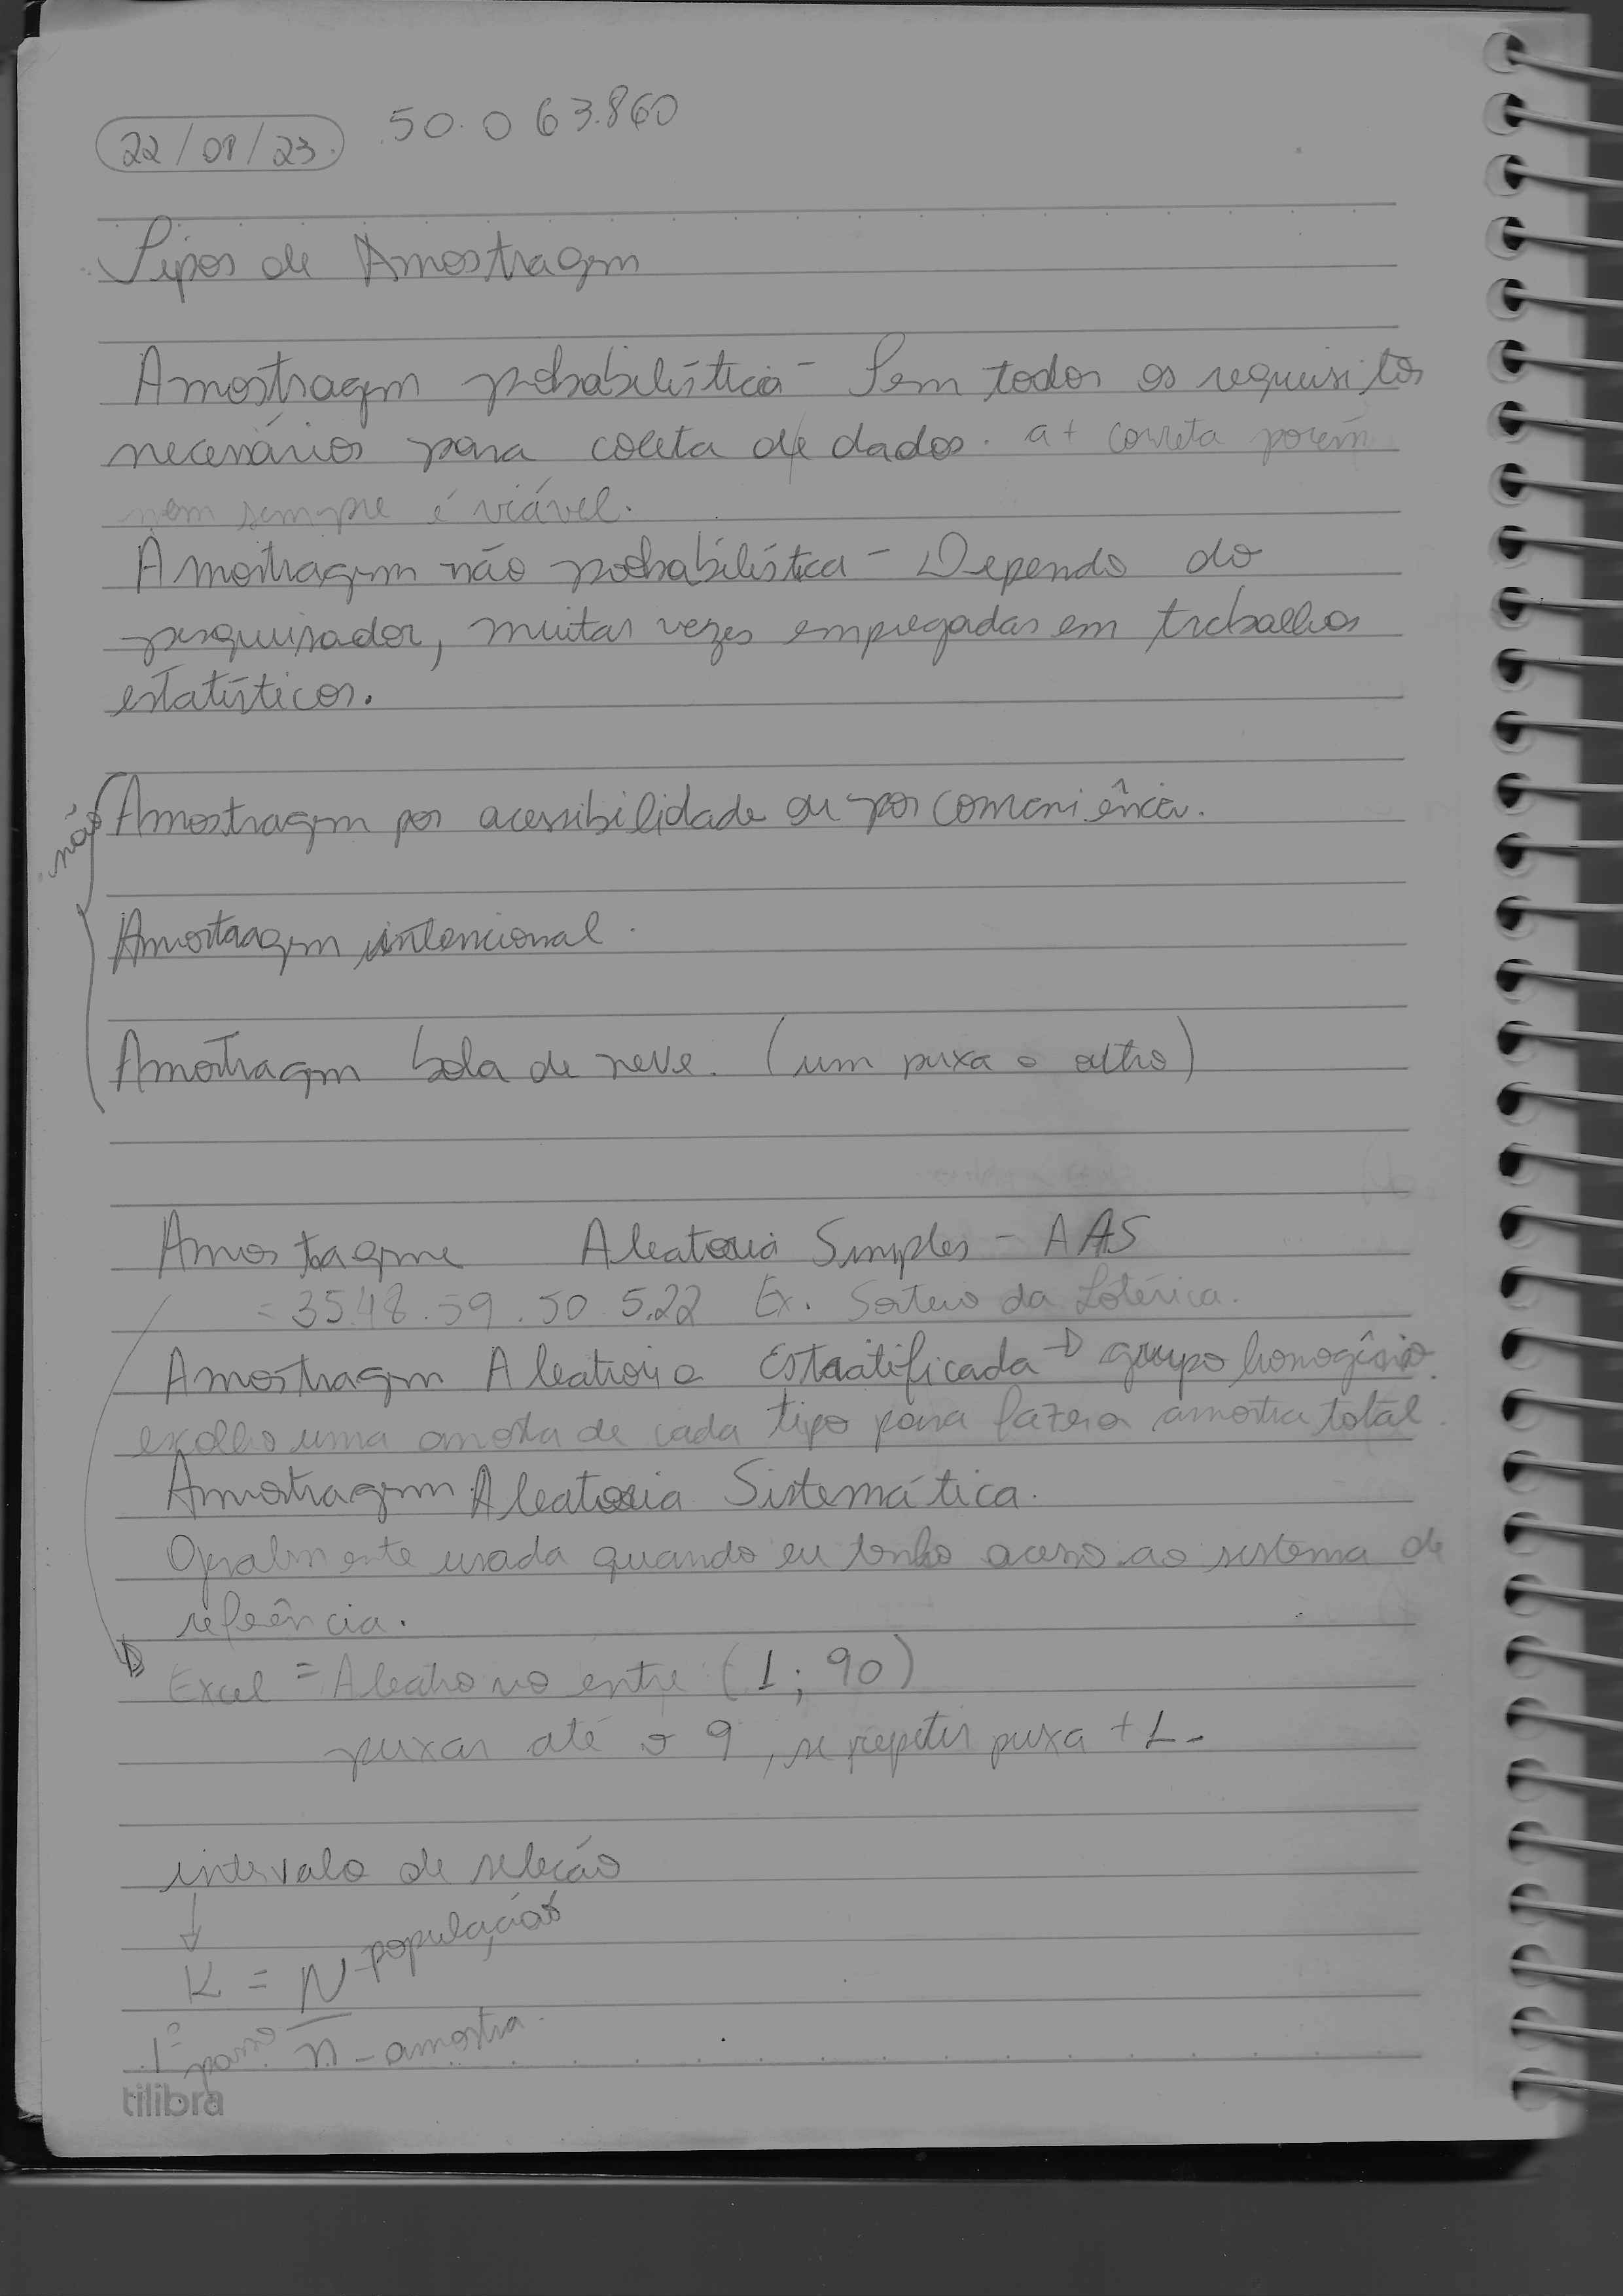 22/08/23. 50.063.860
Tipos de Amostragem
Amostragem probabilística - Tem todos os requisitos
necessários para coleta de dados. a + correta porém
nem sempre é viável.
Amostragem não probabilística - Depende do
pesquisador, muitas vezes empregadas em trabalhos
estatísticos.
não
Amostragem por acessibilidade ou por conveniência.
Amostragem intencional.
Amostragem bola de neve. (um puxa o outro)
Amostragem Aleatoria Simples - AAS
= 35.48.59.50.5.22 Ex. Sorteio da Lotérica.
Amostragem Aleatoria Estratificada → grupo homogênio.
escolho uma amostra de cada tipo para fazer a amostra total.
Amostragem Aleatoria Sistemática.
Geralmente usada quando eu tenho acesso ao sistema de
referência.
Excel = Aleatorio entre (1; 90)
puxar até o 9, se repetir puxa + 1.
intervalo de seleção
↓
K = N - população
1º passo n - amostra.
tilibra